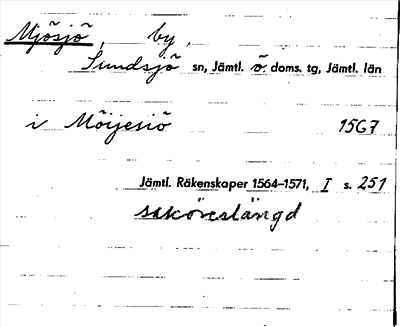 Mjösjö, by,
Sundsjö sn, Jämtl. ö doms. tg, Jämtl. län
i Möijesiö 1567
Jämtl. Räkenskaper 1564–1571, I s. 251
saköreslängd